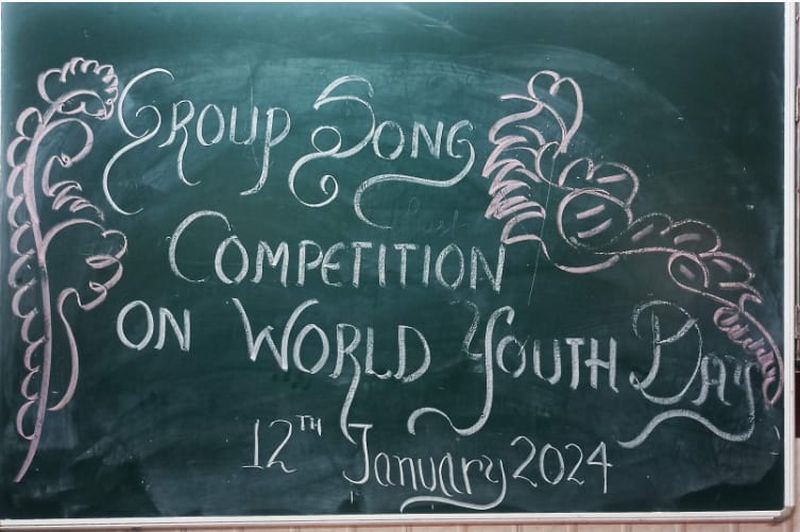 GROUP SONG
COMPETITION
ON WORLD YOUTH DAY
12TH January 2024